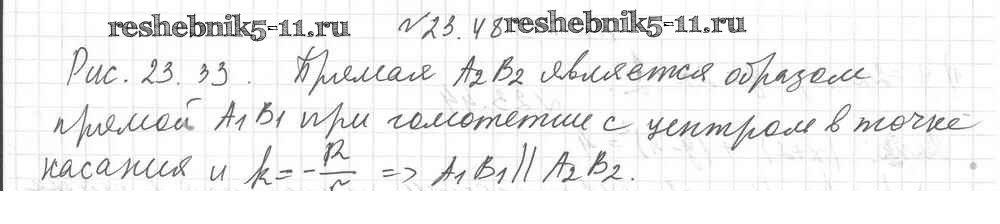 reshebnik5-11.ru №23.48 reshebnik5-11.ru
Рис. 23.33. Прямая A₂B₂ является образом
прямой A₁B₁ при гомотетии с центром в точке
касания и k = -R/r => A₁B₁ || A₂B₂.